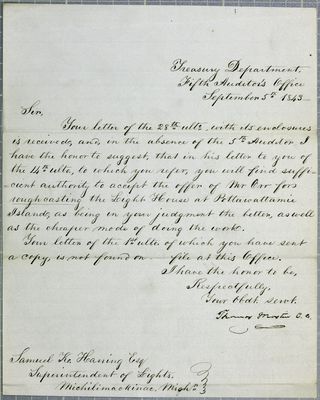 Treasury Department,
Fifth Auditor's Office
September 5th 1843
Sir,
Your letter of the 28th ulto. with its enclosures
is received, and, in the absence of the 5th Auditor, I
have the honor to suggest, that in his letter to you of
the 14th ulto, to which you refer, you will find suffi-
cient authority to accept the offer of Mr Orr for
roughcasting the Light House at Pottawattamie
Islands, as being in your judgment the better, as well
as the cheaper mode of doing the work.
Your letter of the 1st ulto. of which you have sent
a copy, is not found on file at this Office.
I have the honor to be,
Respectfully,
Your Obdt. servt.
Thomas
Samuel K. Haring Esq
Superintendent of Lights,
Michilimackinac, Michn